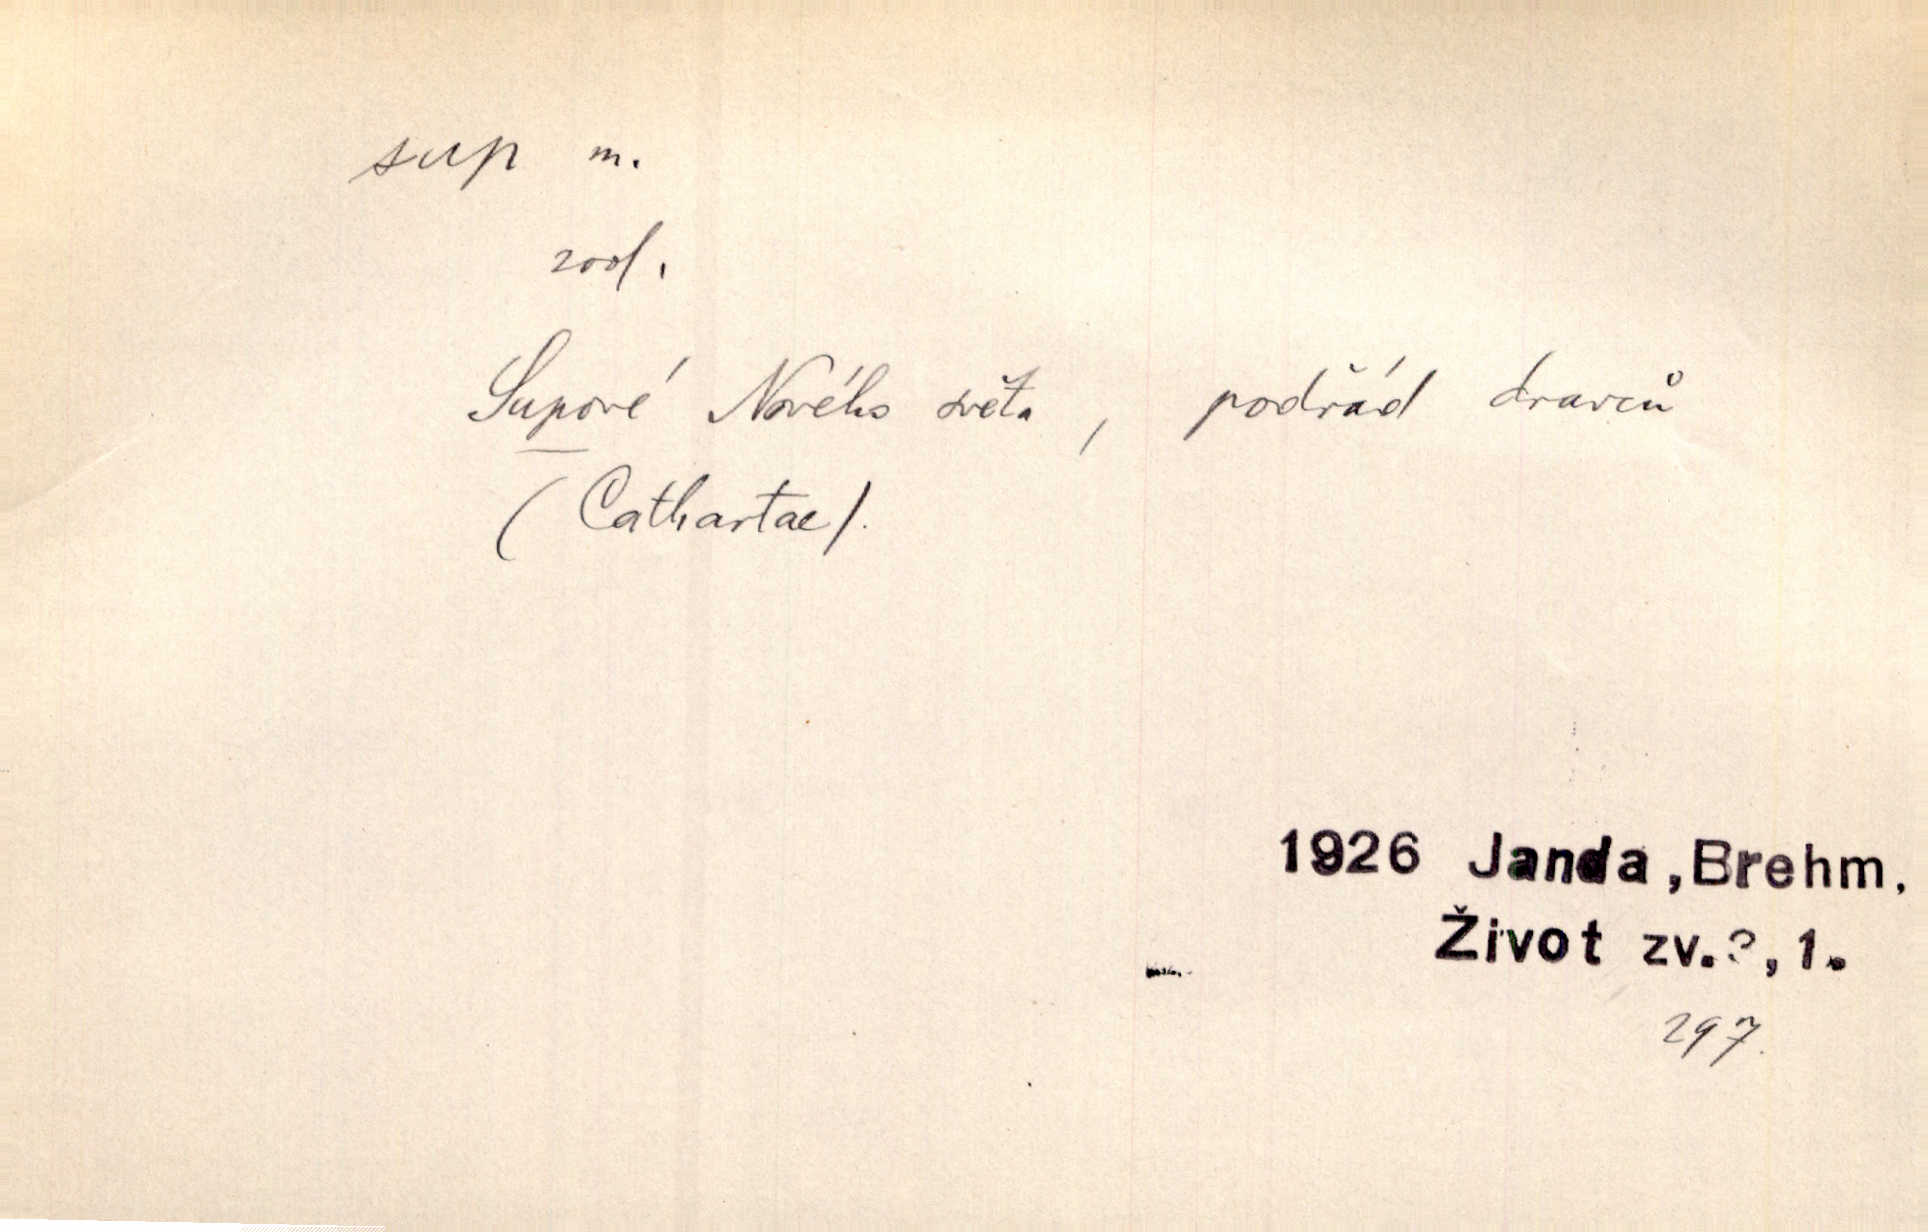 sup m.
zool.
Supové Nového světa, podřád dravců
(Cathartae).
1926 Janda, Brehm.
Život zv. 3, 1.
297.